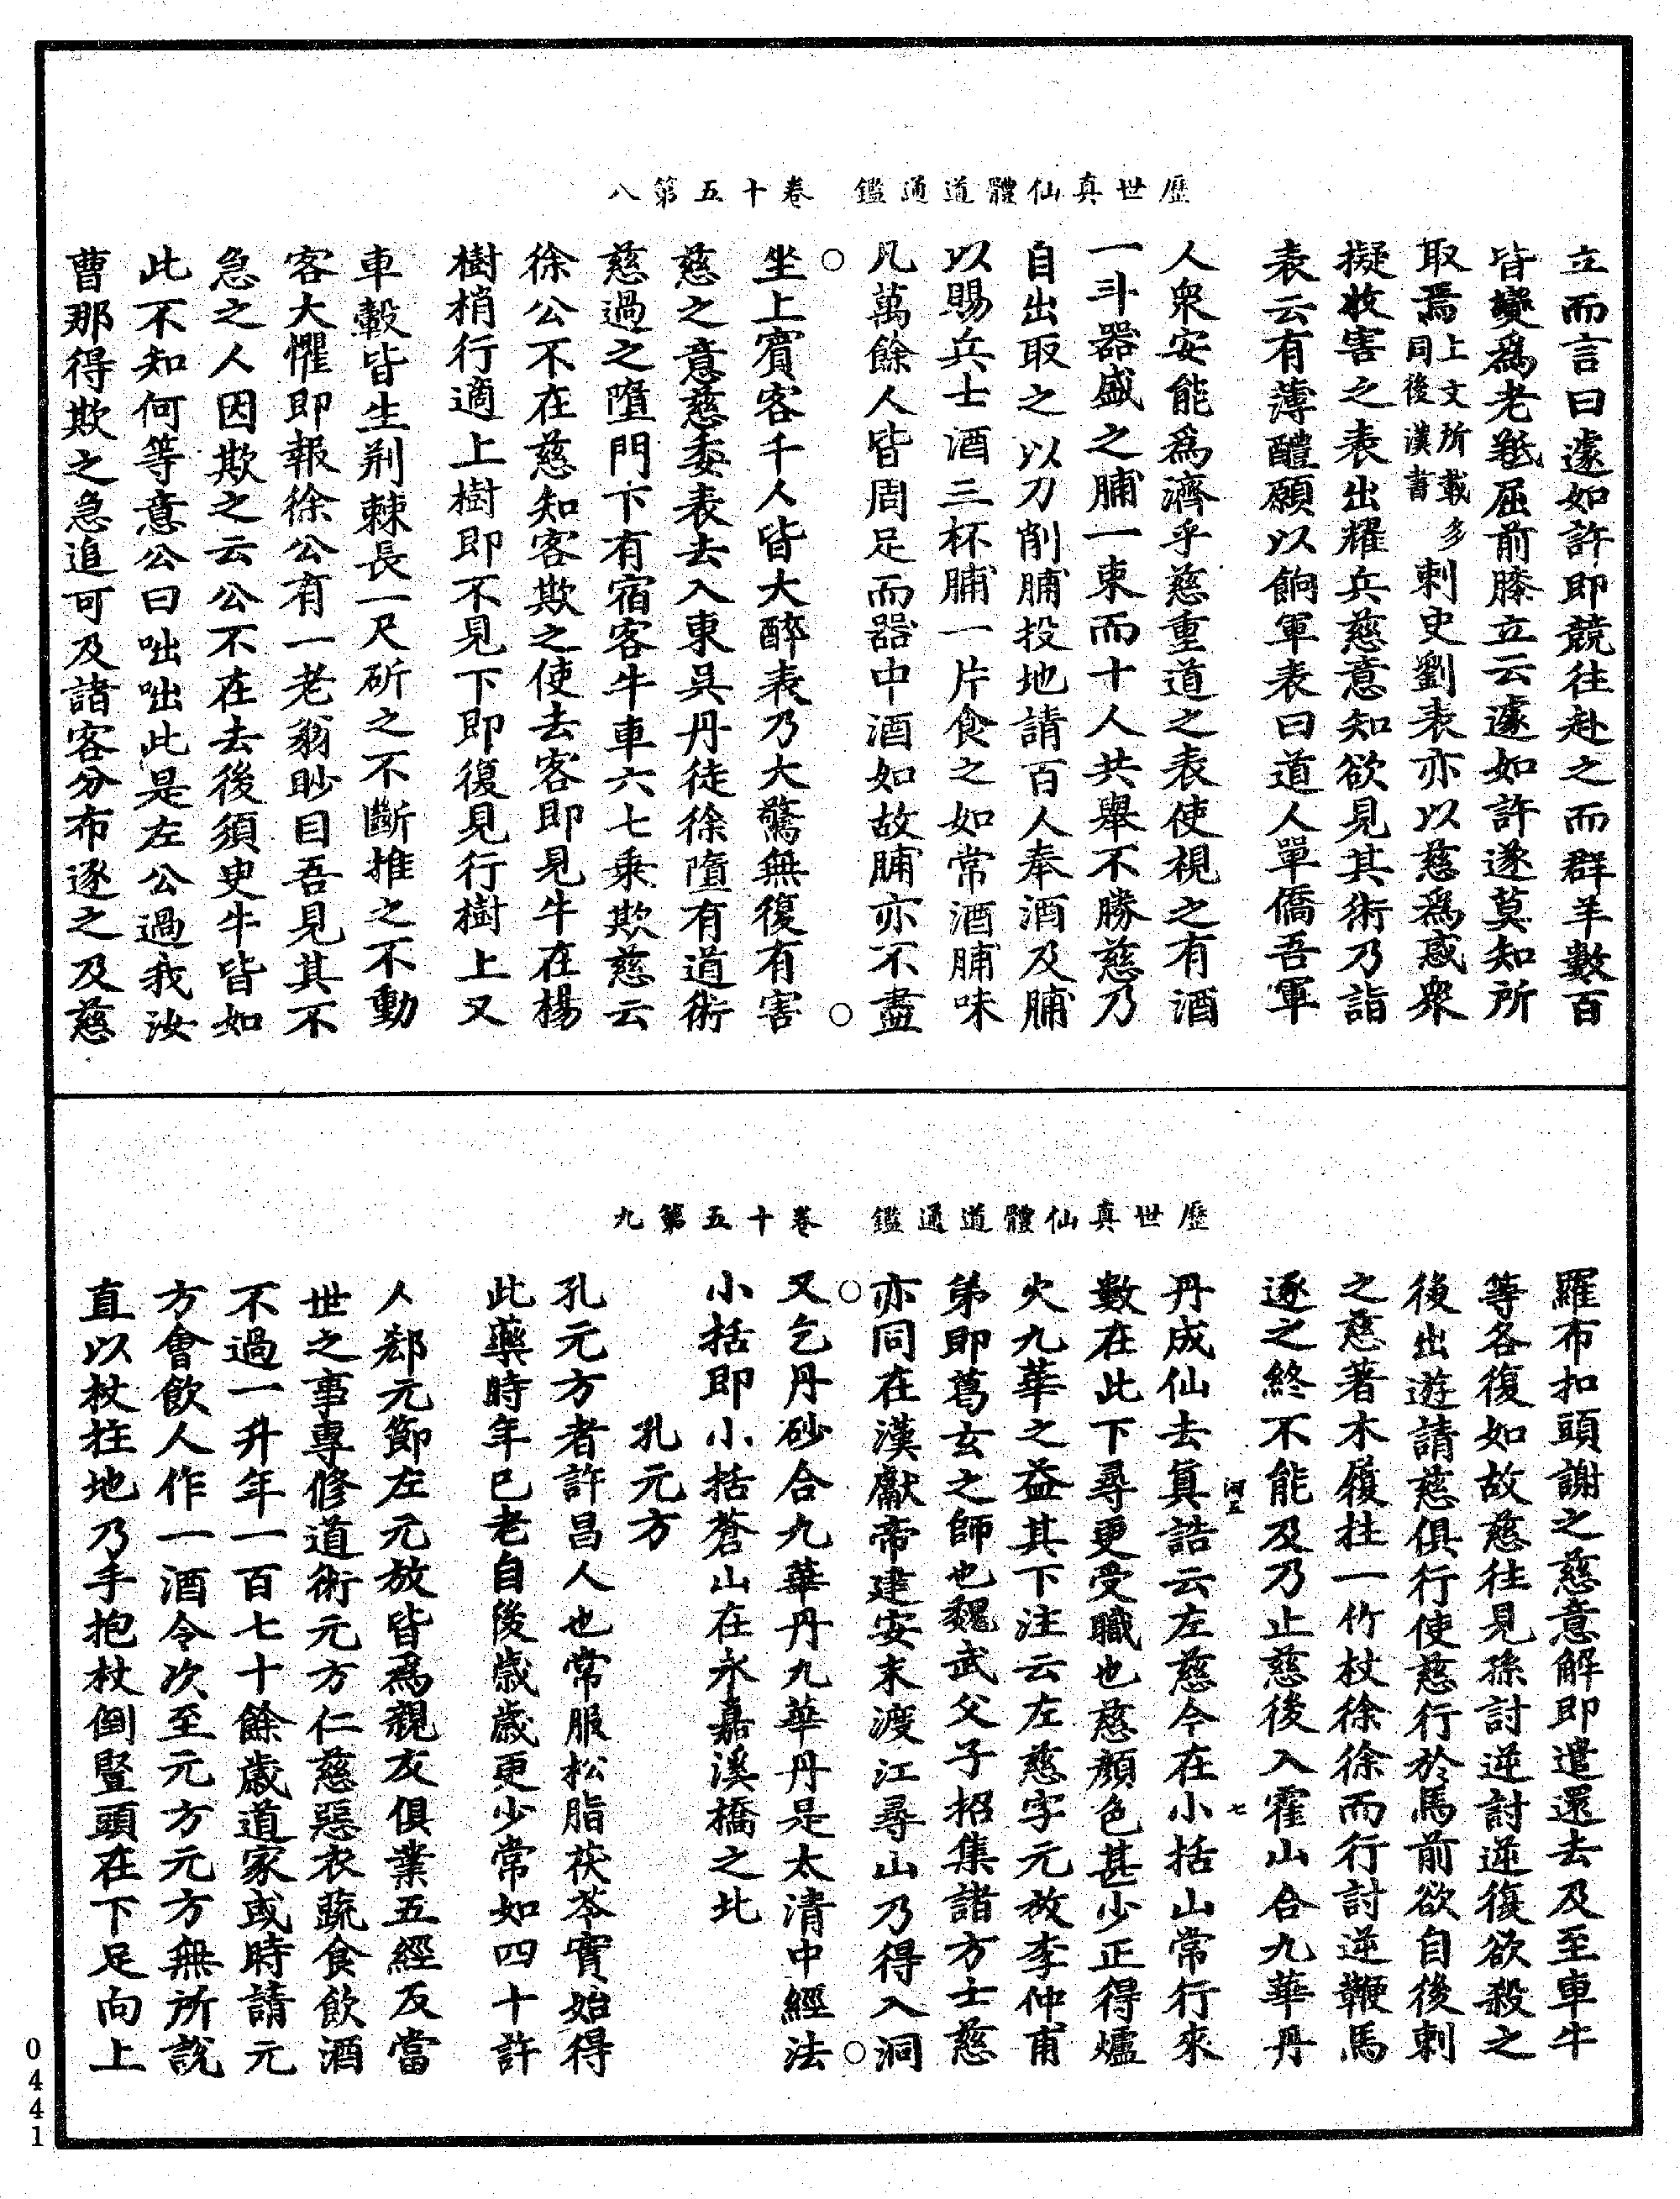 歷世真仙體道通鑑　卷十五第八
立而言曰遽如許即競往赴之而群羊數百
皆變為老羝屈前膝立云遽如許遂莫知所
取焉上文所載多同後漢書刺史劉表亦以慈為惑衆
擬收害之表出耀兵慈意知欲見其術乃詣
表云有薄醴願以餉軍表曰道人單僑吾軍
人衆安能為濟乎慈重道之表使視之有酒
一斗器盛之脯一束而十人共舉不勝慈乃
自出取之以刀削脯投地請百人奉酒及脯
以賜兵士酒三杯脯一片食之如常酒脯味
凡萬餘人皆周足而器中酒如故脯亦不盡
坐上賓客千人皆大醉表乃大驚無復有害
慈之意慈委表去入東吳丹徒徐墮有道術
慈過之墮門下有宿客牛車六七乘欺慈云
徐公不在慈知客欺之使去客即見牛在楊
樹梢行適上樹即不見下即復見行樹上又
車轂皆生荊棘長一尺斫之不斷推之不動
客大懼即報徐公有一老翁眇目吾見其不
急之人因欺之云公不在去後須臾牛皆如
此不知何等意公曰咄咄此是左公過我汝
曹那得欺之急追可及諸客分布逐之及慈
歷世真仙體道通鑑　卷十五第九
羅布扣頭謝之慈意解即遣還去及至車牛
等各復如故慈往見孫討逆討逆復欲殺之
後出遊請慈俱行使慈行於馬前欲自後刺
之慈著木履拄一竹杖徐徐而行討逆鞭馬
逐之終不能及乃止慈後入霍山合九華丹
河五　七
丹成仙去真誥云左慈今在小括山常行來
數在此下尋更受職也慈顏色甚少正得爐
火九華之益其下注云左慈字元放李仲甫
弟即葛玄之師也魏武父子招集諸方士慈
亦同在漢獻帝建安末渡江尋山乃得入洞
又乞丹砂合九華丹九華丹是太清中經法
小括即小括蒼山在永嘉溪橋之北
孔元方
孔元方者許昌人也常服松脂茯苓實始得
此藥時年已老自後歲歲更少常如四十許
人郄元節左元放皆為親友俱業五經反當
世之事專修道術元方仁慈惡衣蔬食飲酒
不過一升年一百七十餘歲道家或時請元
方會飲人作一酒令次至元方元方無所說
直以杖拄地乃手抱杖倒豎頭在下足向上
0441